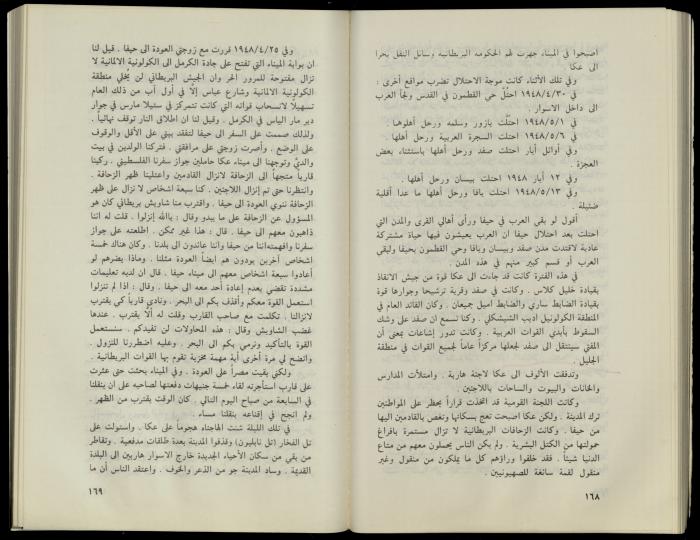 اصبحوا في الميناء جهزت لهم الحكومة البريطانية وسائل النقل بحرا
الى عكا
وفي تلك الأثناء كانت موجة الاحتلال تضرب مواقع أخرى :
١٩٤٨/٤/٣٠ احتُلّ حي القطمون في القدس ولجأ العرب
الى داخل الاسوار .
١٩٤٨/٥/١ احتُلّت يازور وسلمه ورحل أهلوها .
١٩٤٨/٥/٦ احتُلّت السجرة العربية ورحل أهلها .
وفي أوائل أيار احتلت صفد ورحل أهلها باستثناء بعض
العجزة .
وفي ١٢ أيار ١٩٤٨ احتلت بيسان ورحل أهلها .
١٩٤٨/٥/١٣ احتلت يافا ورحل أهلها ما عدا أقلية
ضئيلة .
أقول لو بقي العرب في حيفا ورأى أهالي القرى والمدن التي
احتلت بعد احتلال حيفا ان العرب يعيشون فيها حياة مشتركة
عادية لاقتدت مدن صفد وبيسان ويافا وحي القطمون بحيفا ولبقي
العرب أو قسم كبير منهم في هذه المدن .
في هذه الفترة كانت قد جاءت الى عكا قوة من جيش الانقاذ
بقيادة خليل كلاس . وكانت في صفد وقرية ترشيحا وجوارها قوة
بقيادة الضابط ساري والضابط اميل جميعان . وكان القائد العام في
المنطقة الكولونيل اديب الشيشكلي . وكنا نسمع ان صفد على وشك
السقوط بأيدي القوات العربية . وكانت تدور إشاعات بمعنى أن
المفتي سينتقل الى صفد لجعلها مركزاً عاماً لجميع القوات في منطقة
الجليل .
وتدفقت الألوف الى عكا لاجئة هاربة . وامتلأت المدارس
والخانات والبيوت والساحات باللاجئين .
وكانت اللجنة القومية قد اتخذت قراراً يحظر على المواطنين
ترك المدينة . ولكن عكا اصبحت تعج بسكانها وتغص بالقادمين اليها
من حيفا . وكانت الزحافات البريطانية لا تزال مستمرة بافراغ
حمولتها من الكتل البشرية . ولم يكن الناس يحملون معهم من متاع
الدنيا شيئاً . فقد خلفوا وراؤهم كل ما يملكون من منقول وغير
منقول لقمة سائغة للصهيونيين .
١٦٨
وفي ١٩٤٨/٤/٢٥ قررت مع زوجتي العودة الى حيفا . قيل لنا
ان بوابة الميناء التي تفتح على جادة الكرمل الى الكولونية الالمانية لا
تزال مفتوحة للمرور الحر وان الجيش البريطاني لن يُخلي منطقة
الكولونية الالمانية وشارع عباس إلاّ في أول آب من ذلك العام
تسهيلاً لانسحاب قواته التي كانت تتمركز في ستيلا مارس في جوار
دير مار الياس في الكرمل . وقيل لنا ان اطلاق النار توقف نهائياً .
ولذلك صممت على السفر الى حيفا لتفقد بيتي على الأقل والوقوف
على الوضع . وأصرت زوجتي على مرافقتي . فتركنا الولدين في بيت
والديّ وتوجهنا الى ميناء عكا حاملين جواز سفرنا الفلسطيني . ركبنا
قارباً متجهاً الى الزحافة لانزال القادمين واعتلينا ظهر الزحافة .
وانتظرنا حتى تم إنزال اللاجئين . كنا سبعة اشخاص لا نزال على ظهر
الزحافة ننوي العودة الى حيفا . واقترب منا شاويش بريطاني كان هو
المسؤول عن الزحافة على ما يبدو وقال : ياالله إنزلوا . قلت له اننا
ذاهبون معهم الى حيفا . قال : هذا غير ممكن . اطلعته على جواز
سفرنا وافهمته اننا من حيفا واننا عائدون الى بلدنا . وكان هناك خمسة
اشخاص آخرين يودون هم أيضاً العودة مثلنا . وماذا يضرهم لو
أعادوا سبعة اشخاص معهم الى ميناء حيفا . قال ان لديه تعليمات
مشددة تقضي بعدم إعادة أحد معه الى حيفا . وقال : اذا لم تنزلوا
استعمل القوة معكم وأقذف بكم الى البحر . ونادى قارباً كي يقترب
لانزالنا . تكلمت مع صاحب القارب وقلت له ألاّ يقترب . عندها
غضب الشاويش وقال : هذه المحاولات لن تفيدكم . سنستعمل
القوة بالتأكيد ونرمي بكم الى البحر . وعليه اضطررنا للنزول .
واتضح لي مرة أخرى أية مهمة مخزية تقوم بها القوات البريطانية .
ولكني بقيت مصراً على العودة . وفي الميناء بحثت حتى عثرت
على قارب استأجرته لقاء خمسة جنيهات دفعتها لصاحبه على ان ينقلنا
في السابعة من صباح اليوم التالي . كان الوقت يقترب من الظهر .
ولم انجح في إقناعه بنقلنا مساء .
في تلك الليلة شنت الهاجناه هجوماً على عكا . واستولت على
تل الفخار (تل نابليون) وقذفوا المدينة بعدة طلقات مدفعية . وتقاطر
من بقي من سكان الأحياء الجديدة خارج الاسوار هاربين الى البلدة
القديمة . وساد المدينة جو من الذعر والخوف . واعتقد الناس أن ما
١٦٩